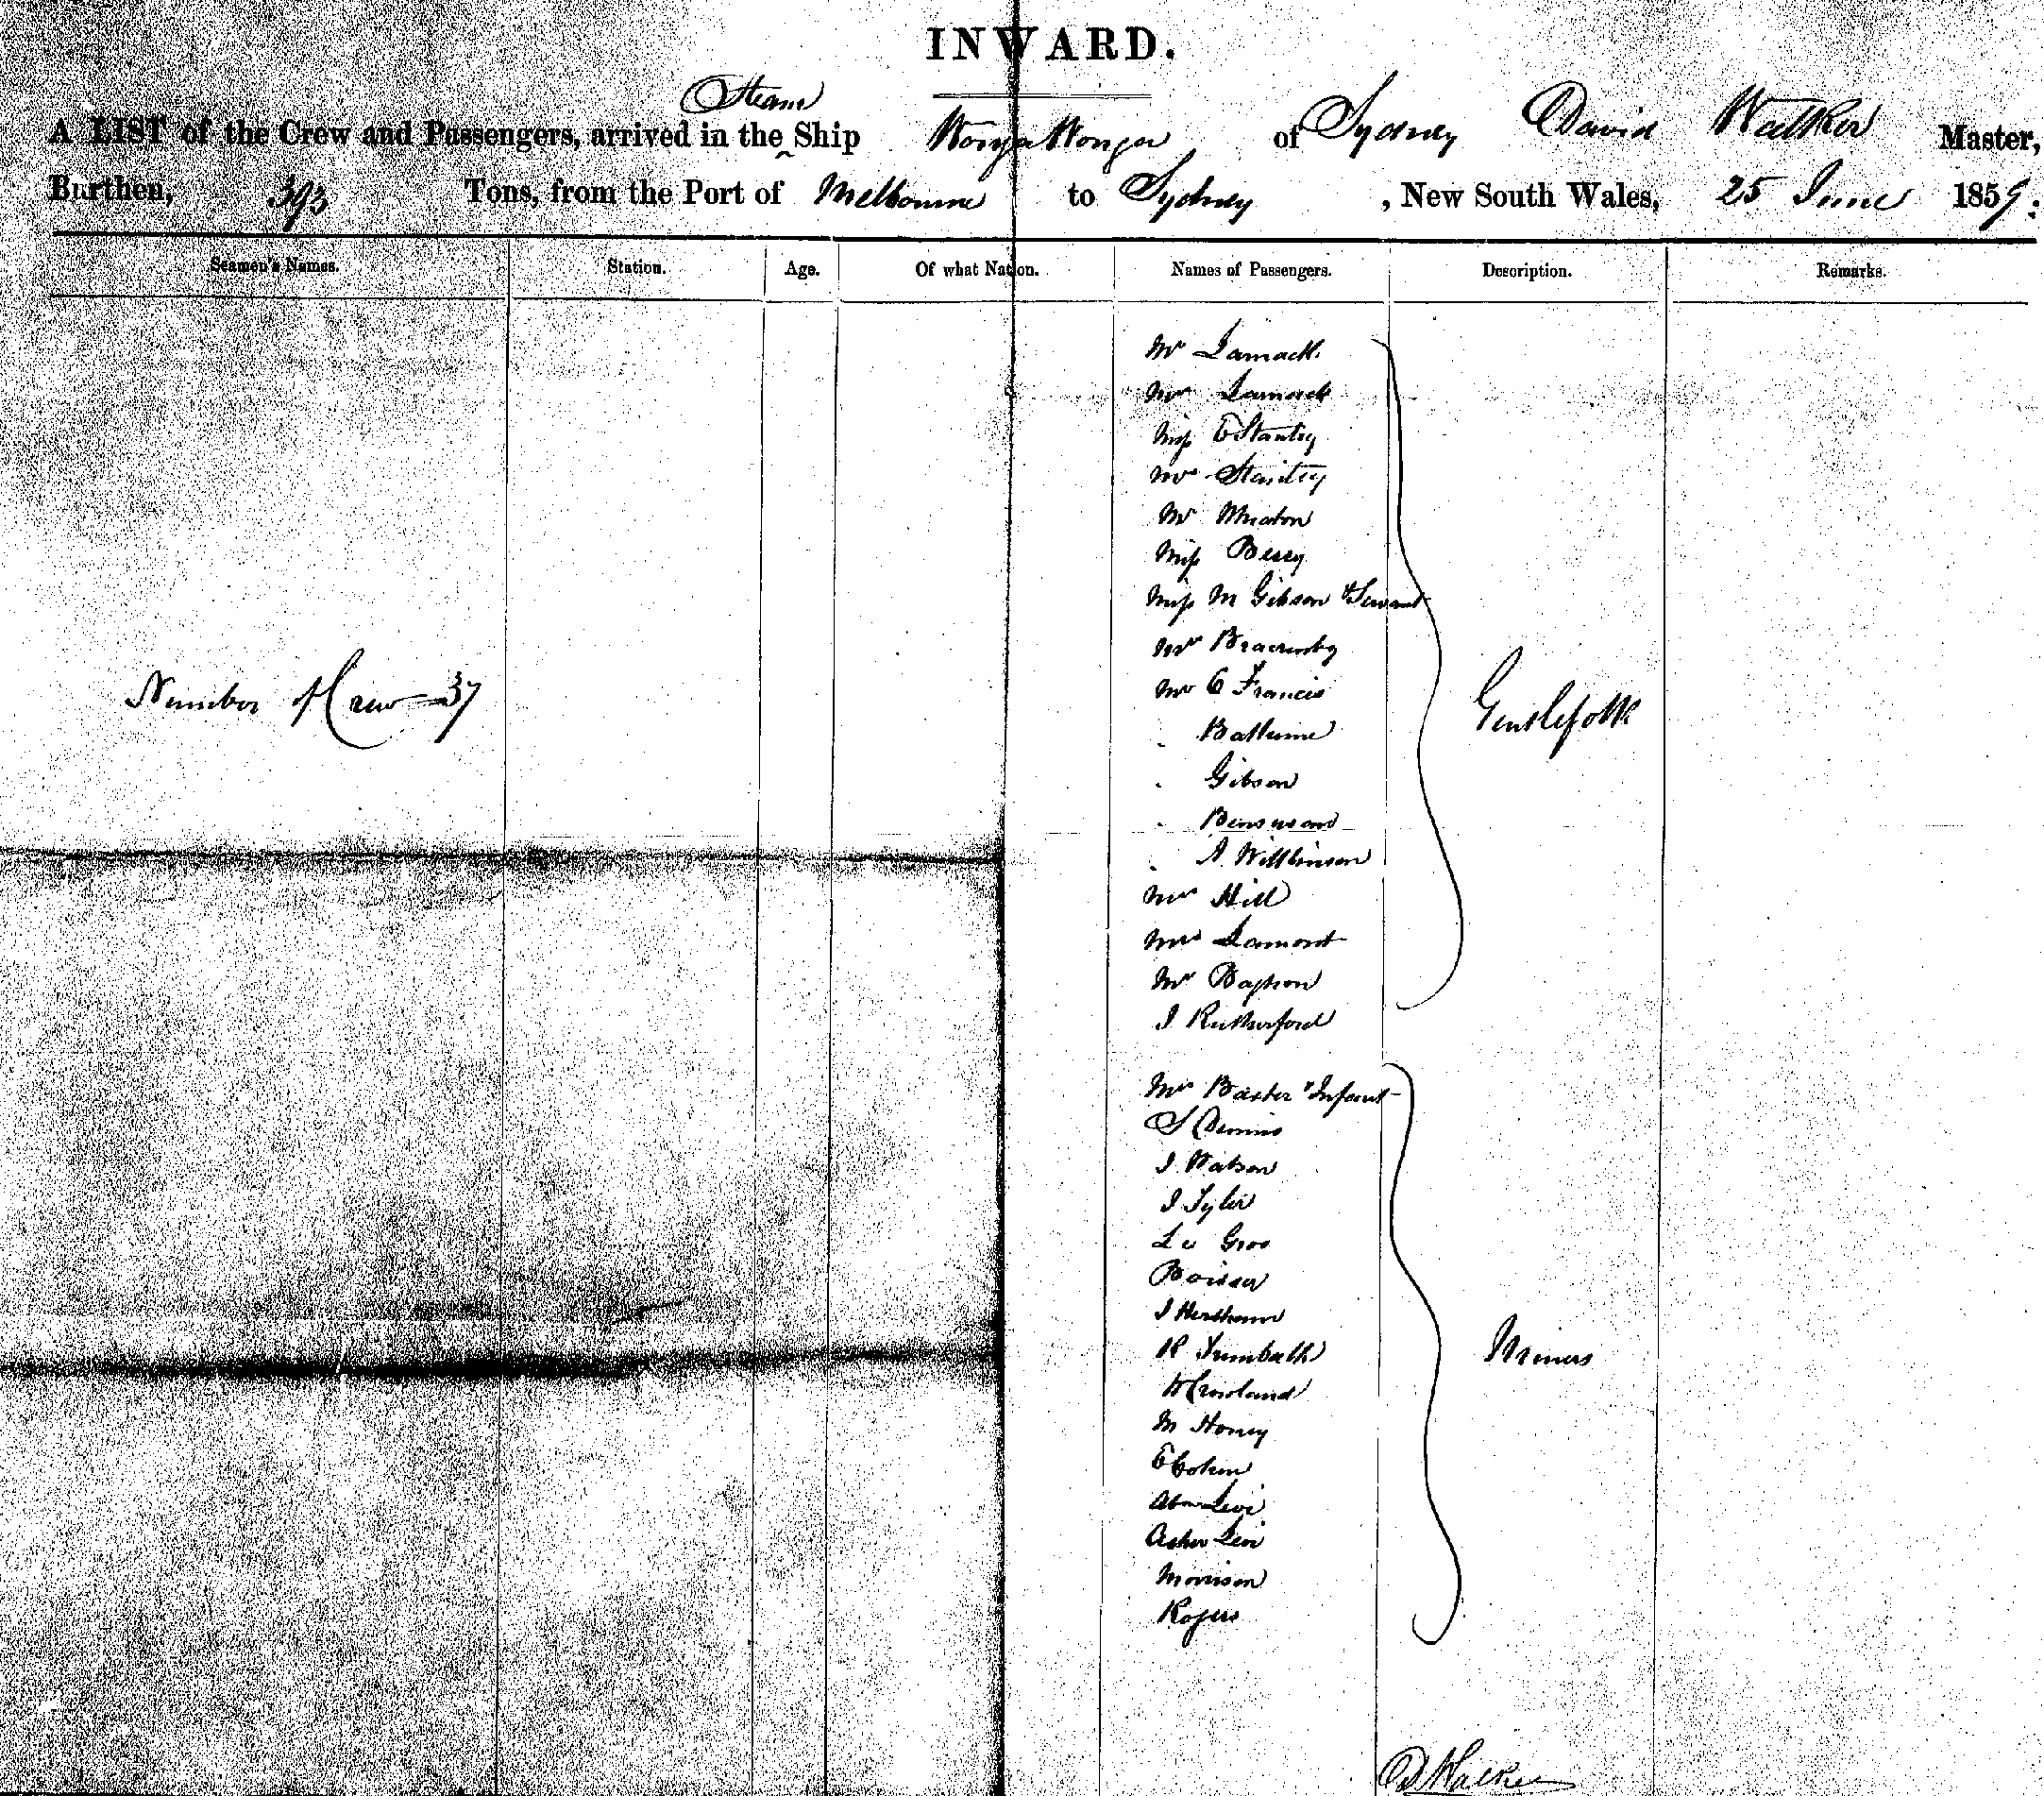 INWARD.
Steam
A LIST of the Crew and Passengers, arrived in the ^ Ship Wonga Wonga of Sydney David Walker Master,
Burthen, 393 Tons, from the Port of Melbourne to Sydney, New South Wales, 25 June 1859.
Seamen's Names. Station. Age. Of what Nation. Names of Passengers. Description. Remarks.
Mr Lamack
Mrs Lamack
Miss E Stantey
Mr Stantey
Mr
Miss Berry
Miss M Gibson & Servant
Mr
Mr C Francis
Number of Crew 37
Gentlefolk
Gibson
A. Wilkinson
Mr Hill
Mrs Lamont
Mr
J Rutherford
Mrs Baxter & Infant
S Dennis
J Watson
J Tyler
Le Gros
J
R Trembath
W Crowland
M Honey
E Cohen
Abm Levi
Asher Levi
Morrison
Rogers
Miners
D Walker